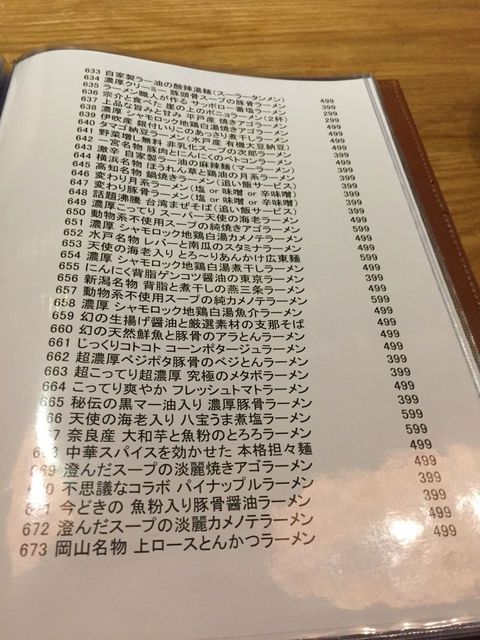 633 自家製ラー油の酸辣湯麺(スーラータンメン) 499
634 濃厚クリーミー 豚頭骨スープの豚骨ラーメン 399
635 ラーメン職人が作る サッポロ一番塩ラーメン 299
636 宗介と食べた 崖の上のポニョラーメン(2杯)
637 上品な旨みと甘み 平戸産 焼きアゴラーメン
638 濃厚 シャモロック地鶏白湯焼きアゴラーメン
639 伊吹産 銀付いりこのあっさり煮干しラーメン
640 タマゴ納豆ラーメン(水戸産 有機大豆納豆)
641 野菜増し無料 非乳化スープの次郎ラーメン
642 一宮名物 豚肉とにんにくのベトコンラーメン
643 激辛 自家製ラー油の麻辣麺(マーラーメン)
644 横浜名物 ほうれん草と鶏油の月系ラーメン
645 高知名物 鍋焼きラーメン(追い飯サービス)
646 変わり月系ラーメン(塩 or 味噌 or 辛味噌)
647 変わり豚骨ラーメン(塩 or 味噌 or 辛味噌)
648 話題沸騰 台湾まぜそば(追い飯サービス)
649 濃厚こってり スーパー天使の海老ラーメン
650 動物系不使用スープの純焼きアゴラーメン
651 濃厚 シャモロック地鶏白湯カメノテラーメン
652 水戸名物 レバーと南瓜のスタミナラーメン
653 天使の海老入り とろ～りあんかけ広東麺
654 濃厚 シャモロック地鶏白湯煮干しラーメン
655 にんにく背脂ゲンコツ醤油の東京ラーメン
656 新潟名物 背脂と煮干しの燕三条ラーメン
657 動物系不使用スープの純カメノテラーメン
658 濃厚 シャモロック地鶏白湯魚介ラーメン
659 幻の生揚げ醤油と厳選素材の支那そば
660 幻の天然鮮魚と豚骨のアラとんラーメン
661 じっくりコトコト コーンポタージュラーメン
662 超濃厚ベジポタ豚骨のベジとんラーメン
663 超こってり超濃厚 究極のメタボラーメン
664 こってり爽やか フレッシュトマトラーメン 499
665 秘伝の黒マー油入り 濃厚豚骨ラーメン 499
66 天使の海老入り 八宝うま煮塩ラーメン 599
7 奈良産 大和芋と魚粉のとろろラーメン 599
668 中華スパイスを効かせた 本格担々麺 499
669 澄んだスープの淡麗焼きアゴラーメン 499
0 不思議なコラボ パイナップルラーメン 399
1 今どきの 魚粉入り豚骨醤油ラーメン 399
672 澄んだスープの淡麗カメノテラーメン 499
673 岡山名物 上ロースとんかつラーメン 499